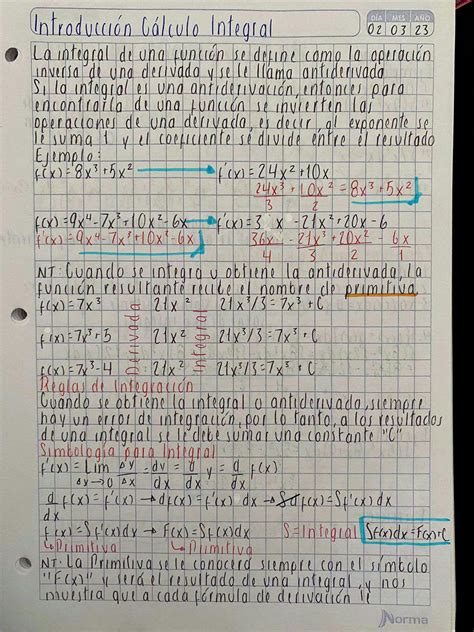 Introducción Cálculo Integral
DÍA MES AÑO
02 03 23
La integral de una función se define como la operación
inversa de una derivada y se le llama antiderivada
Si la integral es una antiderivación, entonces para
encontrarla de una función se invierten las
operaciones de una derivada, es decir al exponente se
le suma 1 y el coeficiente se divide entre el resultado
Ejemplo:
f(x)=8x³+5x² → f'(x)=24x²+10x
24x³/3 + 10x²/2 = 8x³+5x²
f(x)=9x⁴-7x³+10x²-6x → f'(x)=3 x -21x²+20x-6
f'(x)=9x⁴-7x³+10x²-6x 36x⁴/4 - 21x³/3 + 20x²/2 - 6x/1
NT: Cuando se integra y obtiene la antiderivada, la
función resultante recibe el nombre de primitiva
f(x)=7x³ 21x² 21x³/3=7x³+C
f(x)=7x³+5 21x² 21x³/3=7x³+C
f(x)=7x³-4 21x² 21x³/3=7x³+C
Derivada
Integral
Reglas de Integración
Cuando se obtiene la integral o antiderivada, siempre
hay un error de integración, por lo tanto, a los resultados
de una integral se le debe sumar una constante "C"
Simbología para Integral
f'(x)=Lim Δx→0 Δy/Δx = dv/dx = d/dx y = d/dx f(x)
d/dx f(x)=f'(x) → df(x)=f'(x) dx → Sdf(x)=Sf'(x)dx
f(x)=Sf'(x)dx → F(x)=Sf(x)dx S=Integral Sf(x)dx=F(x)+C
↳Primitiva ↳Primitiva
NT: La Primitiva se le conocerá siempre con el símbolo
"F(x)" y será el resultado de una integral, y nos
muestra que a cada fórmula de derivación le
Norma